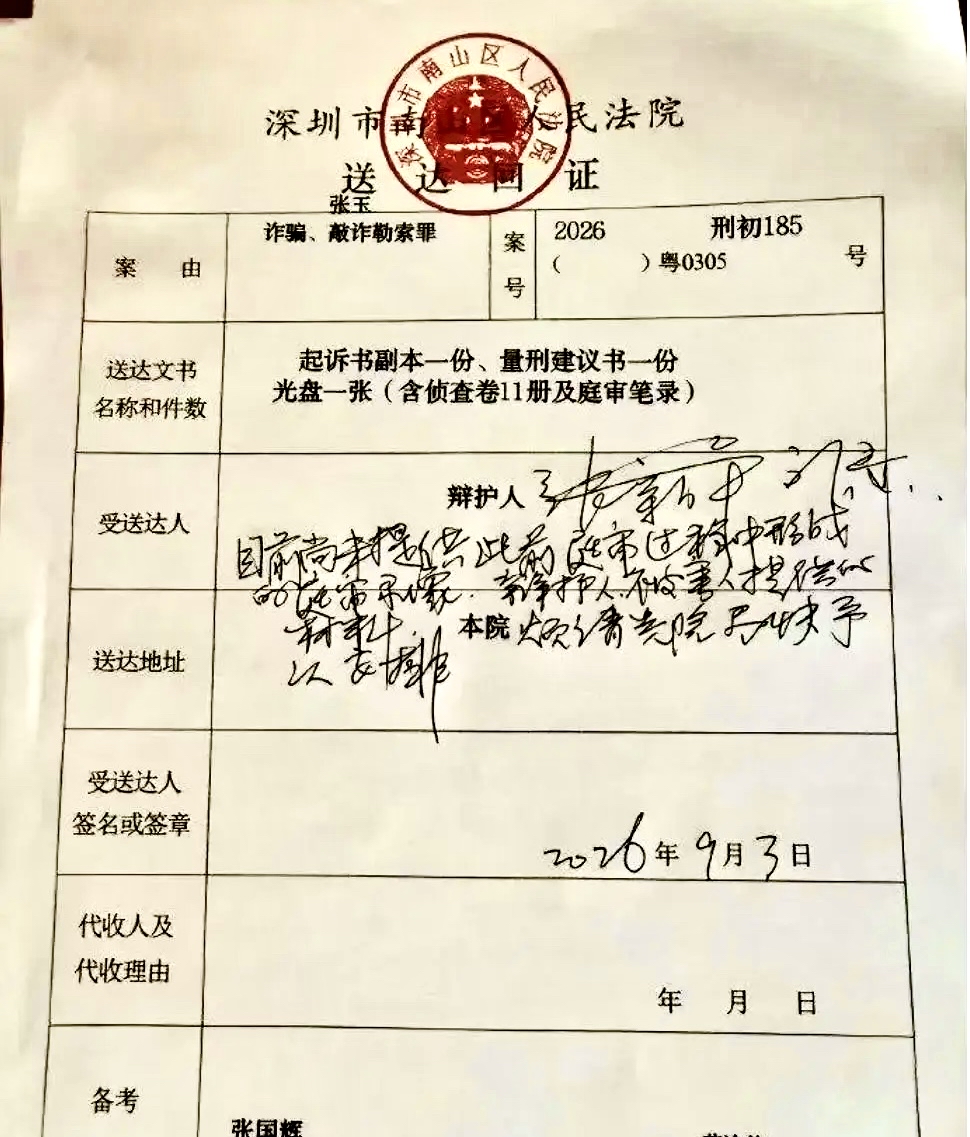 深圳市南山区人民法院
深圳市南山区人民法院
送达回证
案由
张玉
诈骗、敲诈勒索罪
案号
2026 刑初185
( )粤0305 号
送达文书
名称和件数
起诉书副本一份、量刑建议书一份
光盘一张（含侦查卷11册及庭审笔录）
受送达人
辩护人
目前尚未提供此前庭审过程中形成
的庭审录像.辩护人、被害人提供的
材料.
送达地址
本院
予以安排
受送达人
签名或签章
2026年9月3日
代收人及
代收理由
年 月 日
备考
张国辉